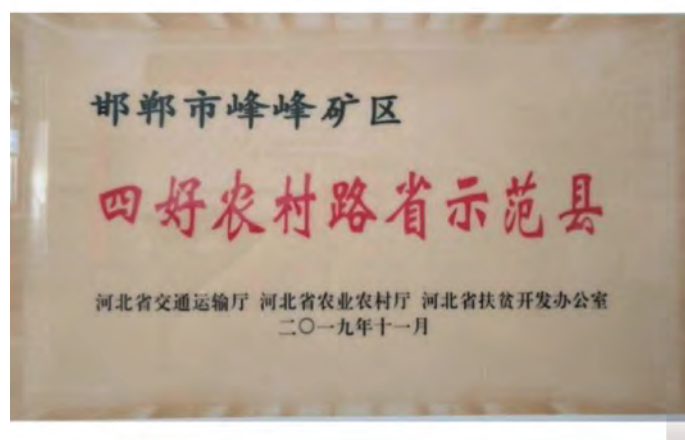 邯郸市峰峰矿区
四好农村路省示范县
河北省交通运输厅 河北省农业农村厅 河北省扶贫开发办公室
二〇一九年十一月